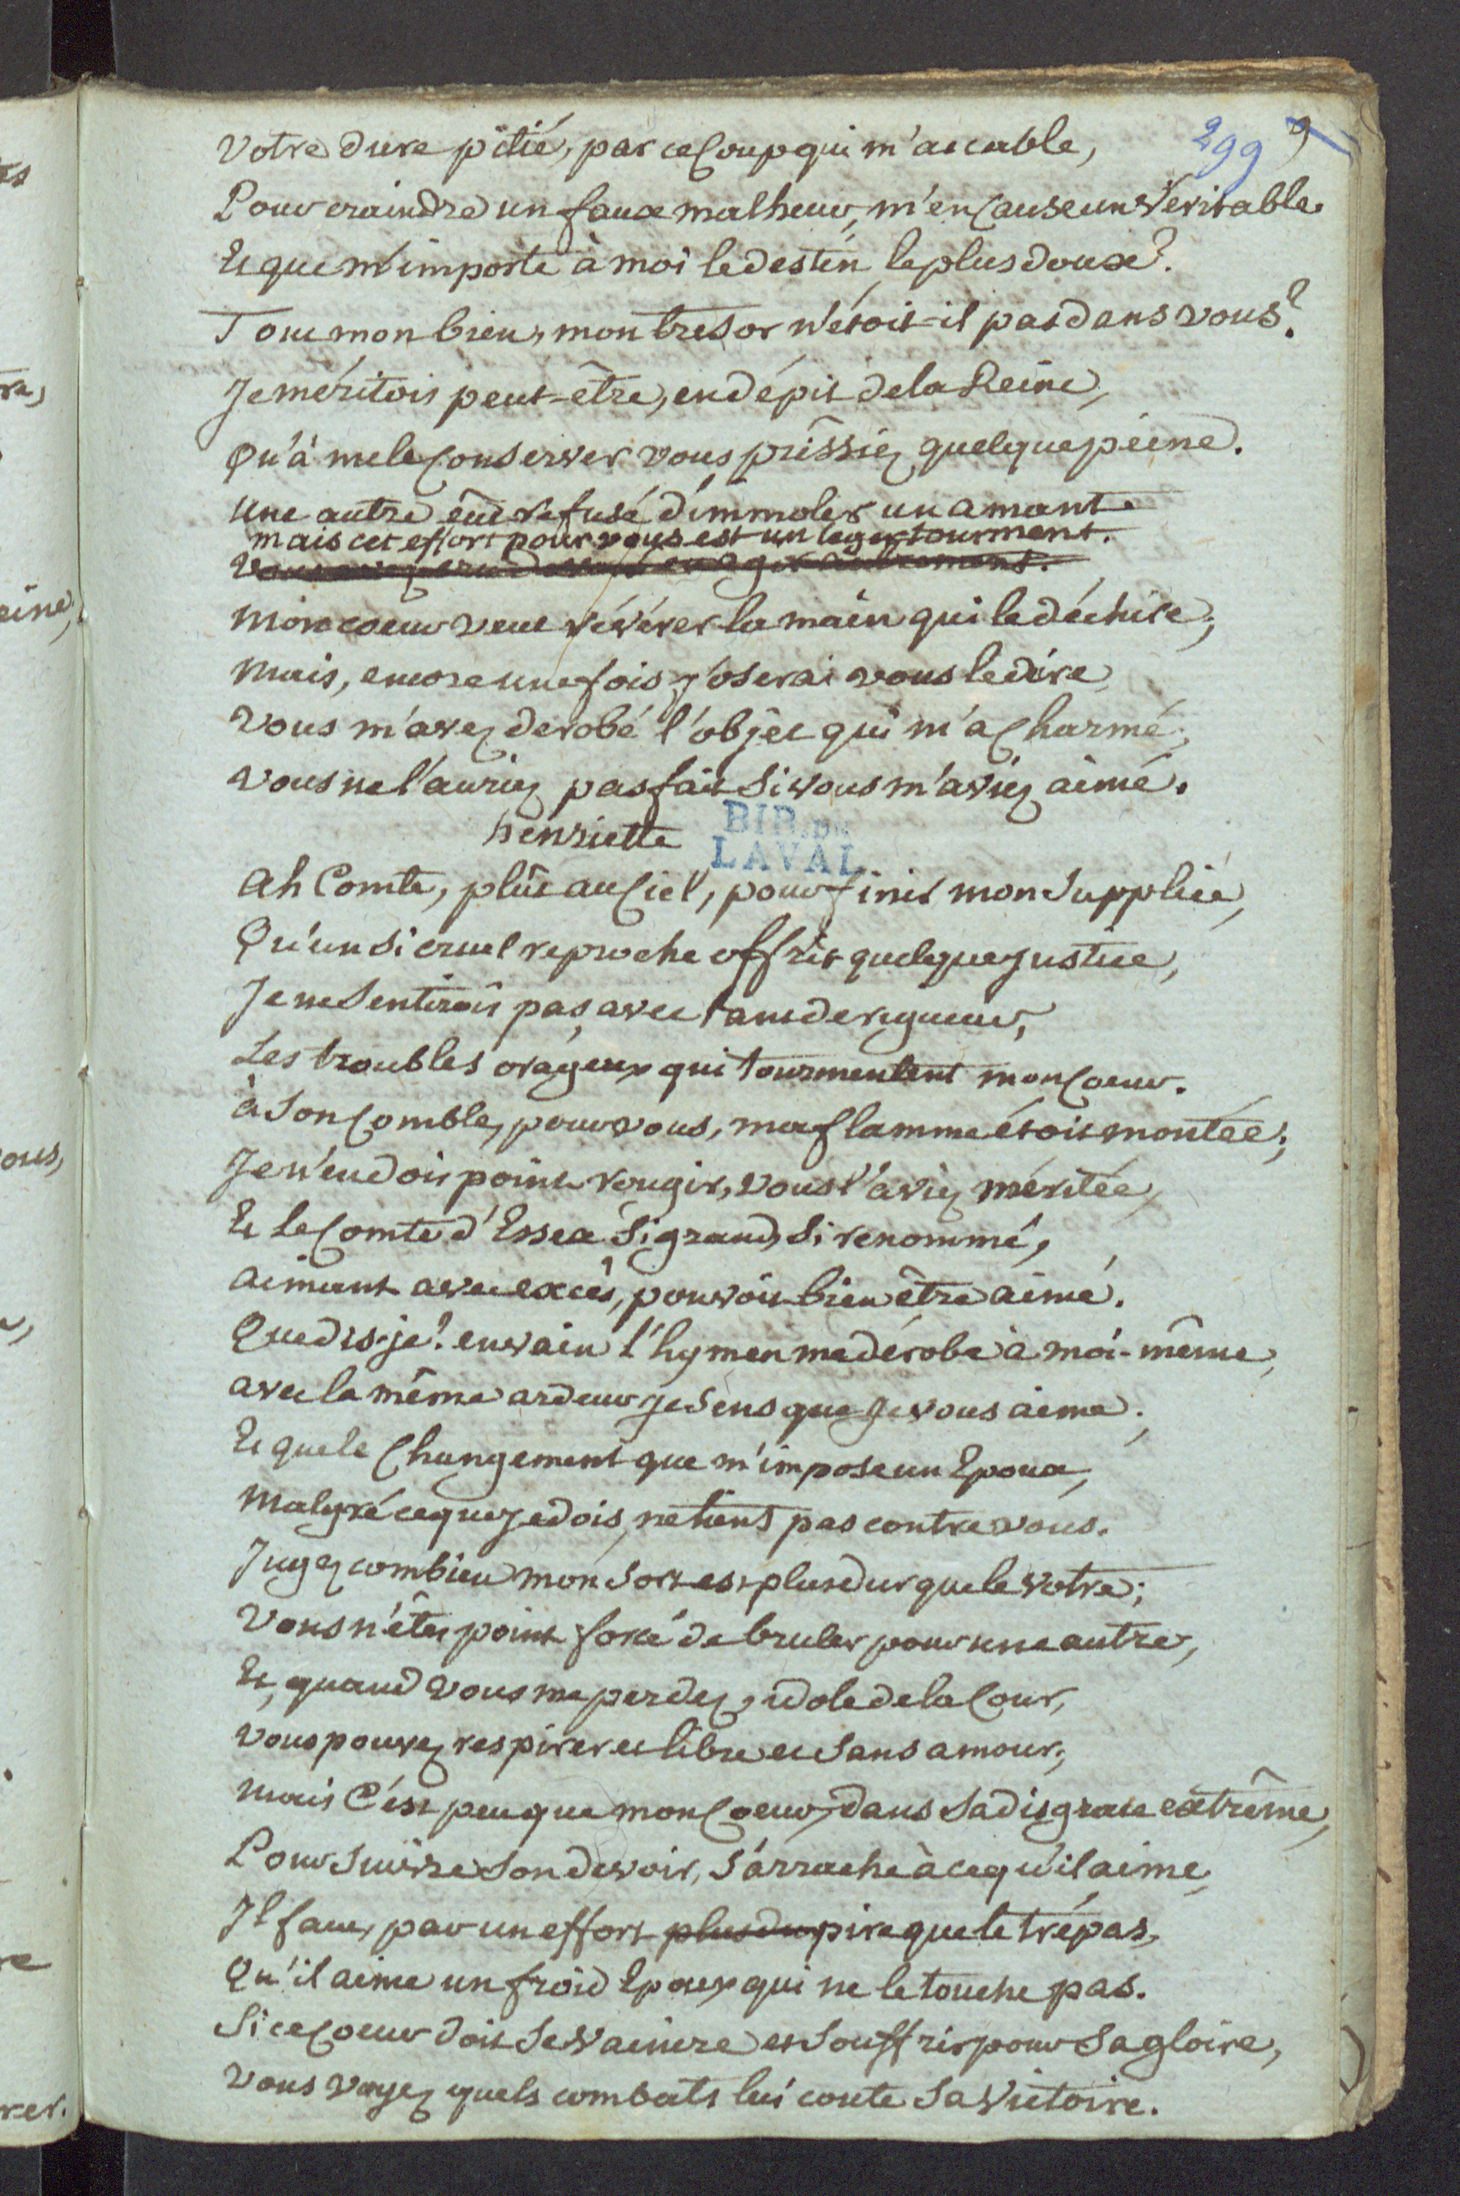 299 9
Votre dure pitié, par ce Coup qui m'accable,
Pour craindre un faux malheur, m'en Cause un Veritable
Et que m'importe à moi le destin le plus doux?
Tout mon bien, mon tresor n'étoit-il pas dans vous?
Je méritois peut-être, en dépit de la Reine,
Qu'à me le Conserver vous prissiez quelque peine.
Une autre eût refusé d'immoler un amant
mais cet effort pour vous est un leger tourment.
Vous avez cru devoir en agir autrement.
Mon coeur veut révérer la main qui le déchire;
Mais, encore une fois, j'oserai vous le dire
Vous m'avez derobé l'objet qui m'a Charmé;
Vous ne l'auriez pas fait Si vous m'aviez aimé.
henriette
BIB. DE
LAVAL
Ah Comte, plût au Ciel, pour finir mon Supplice,
Qu'un Si cruel reproche offrit quelque justice,
Je ne Sentirois pas, avec tant de rigueur,
Les troubles orageux qui tourmentent mon Coeur.
à Son Comble, pour vous, ma flamme étoit montée;
Je n'en dois point rougir, vous l'aviez méritée,
Et Le Comte d'Essex Si grand, Si renommé,
aimant avec excès, pouvoit bien être aimé.
Que dis-je? en vain l'hymen me dérobe à moi-même,
avec la même ardeur je Sens que je vous aime;
Et que le Changement que m'impose un Epoux,
Malgré ce que je dois, ne tient pas contre vous.
Jugez combien mon Sort est plus dur que le votre;
Vous n'êtes point forcé de bruler pour une autre,
Et, quand vous me perdez, idole de la Cour,
Vous pouvez respirer et libre et Sans amour;
Mais C'est peu que mon Coeur, dans Sa disgrace extrême,
Pour Suivre Son devoir, S'arrache à ce qu'il aime,
Il faut, par un effort plus dur pire que le trépas,
Qu'il aime un froid Epoux qui ne le touche pas.
Si ce Coeur doit Se Vaincre et Souffrir pour Sa gloire,
Vous voyez quels combats lui coute Sa Victoire.